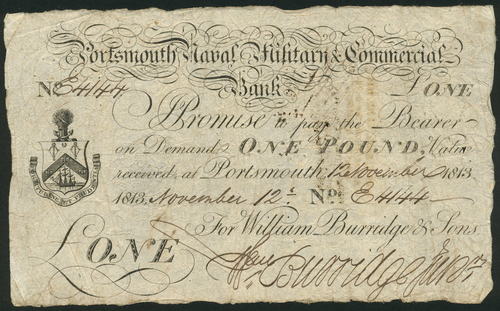 Portsmouth Naval Military & Commercial
Bank
No. E4144 £ ONE
I Promise to pay the Bearer
on Demand ONE POUND, Value
received, at Portsmouth, 12 November 1813
1813, November 12. No. E4144
For William Burridge & Sons
£ ONE
Burridge Junr.